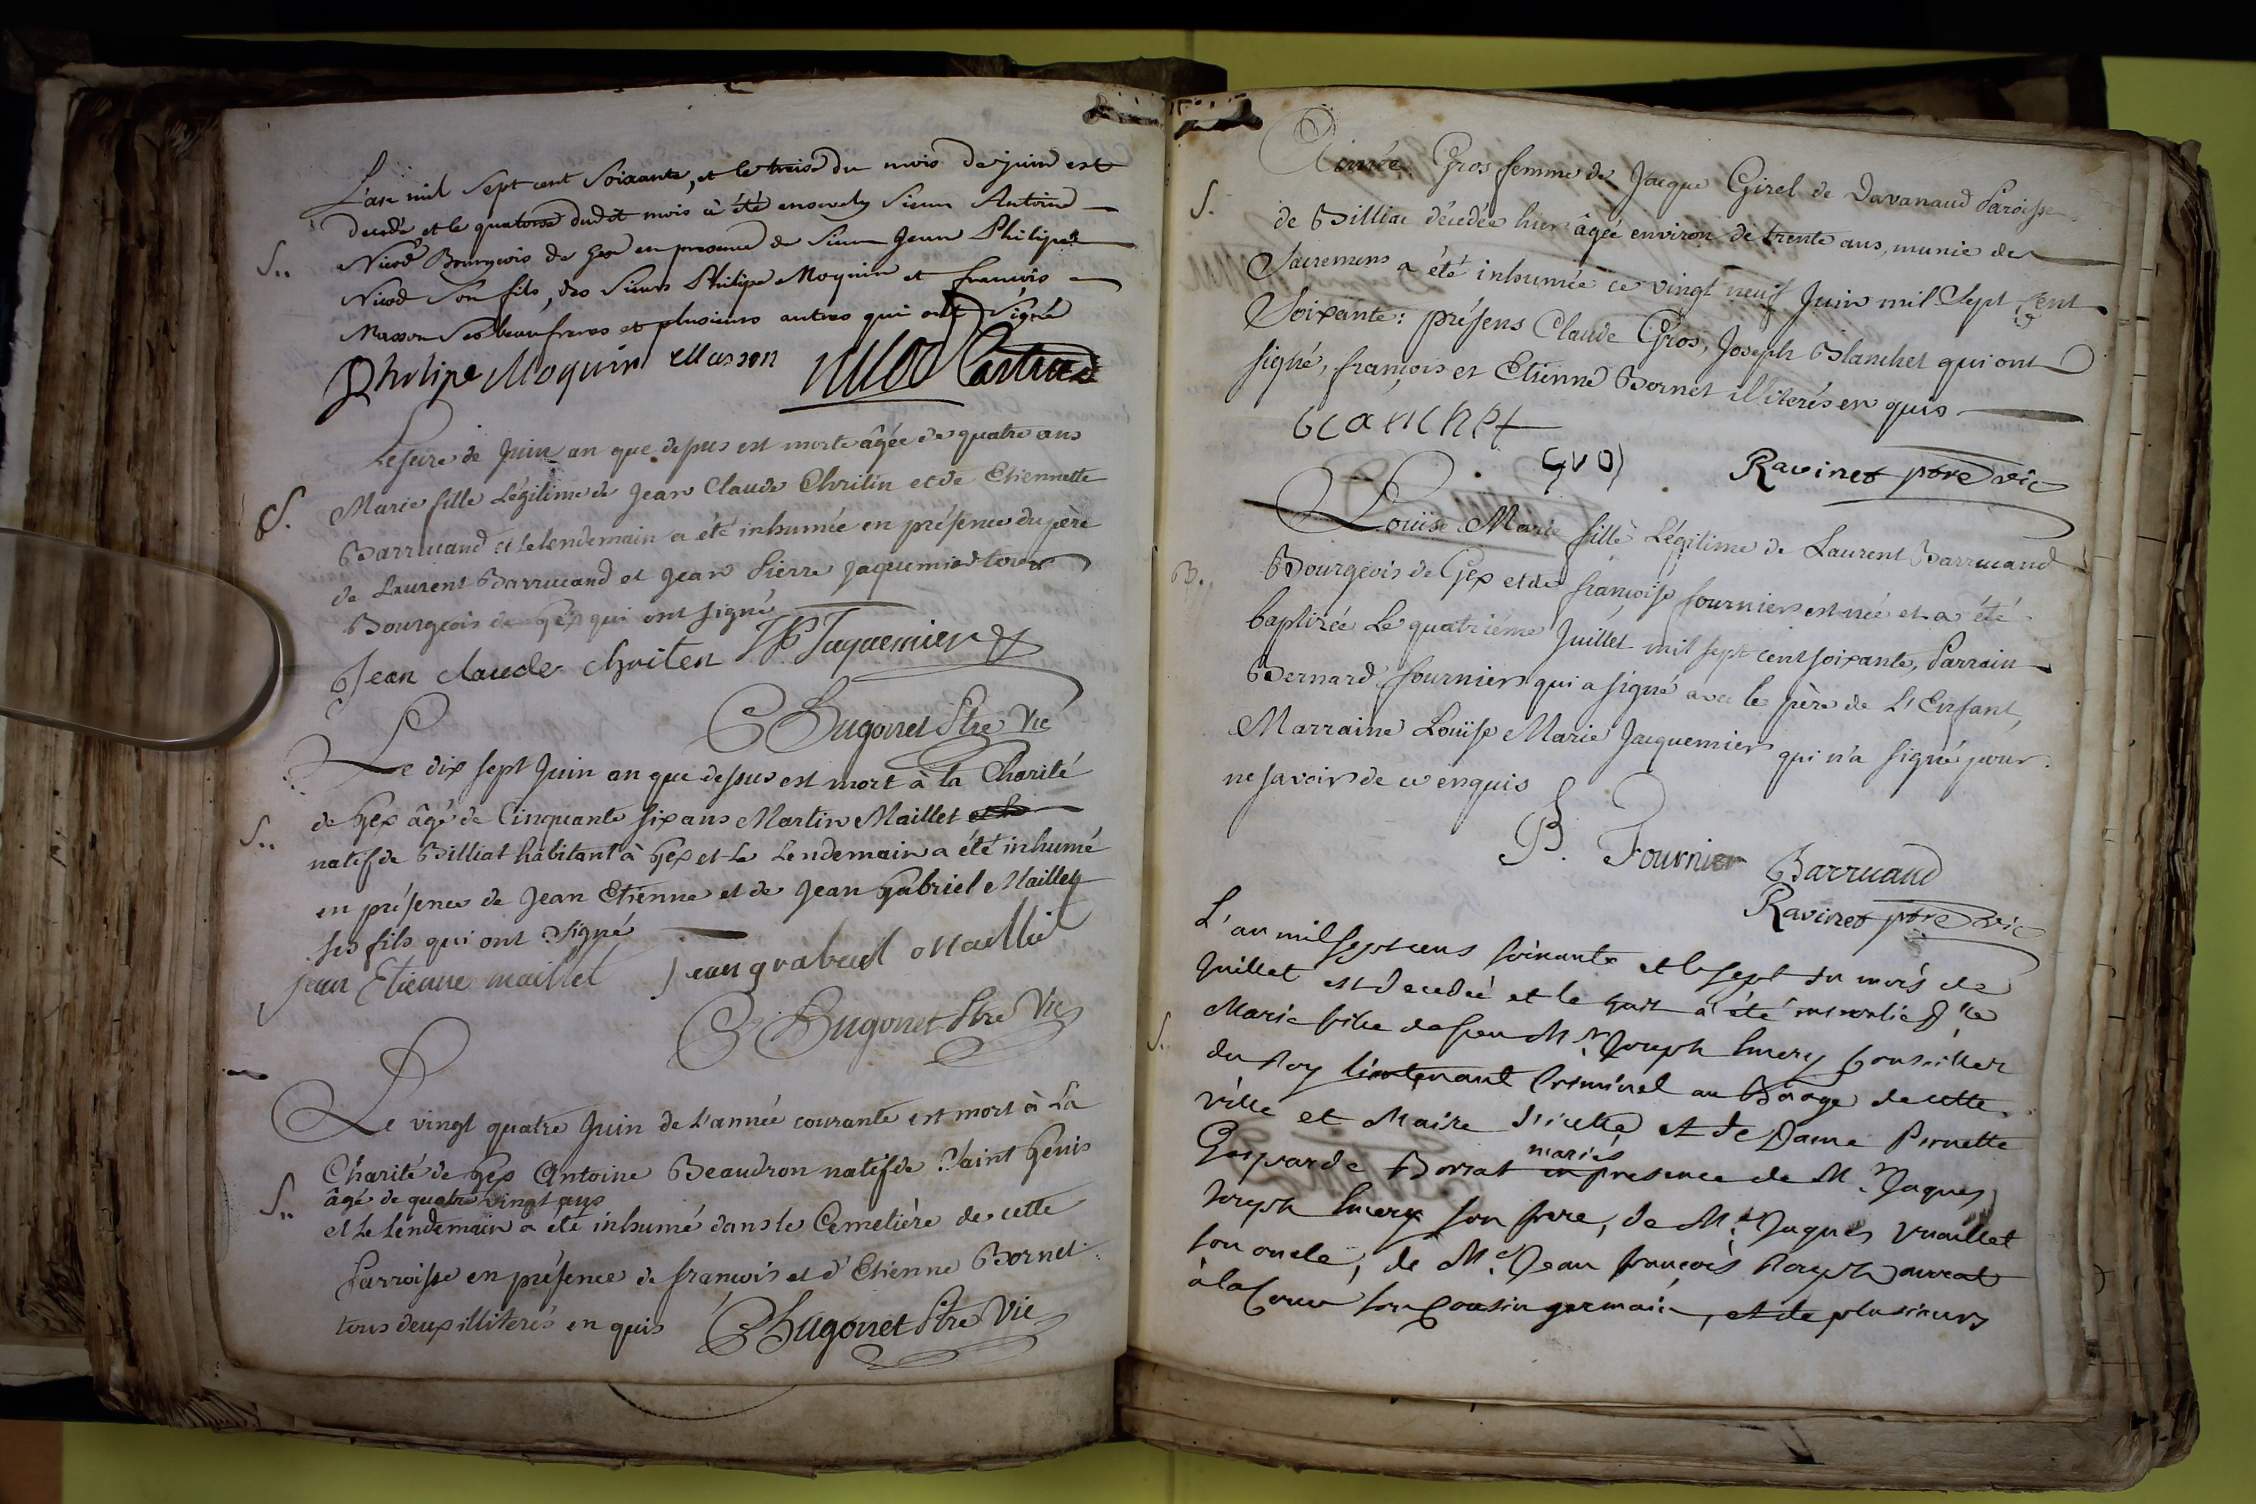 L'an mil sept cent soixante, et le treise du mois de juin est
decedé et le quatorse dudit mois a été ensevely Sieur Antoine
S..
Nicod Bourgeois de Gex en presence de Sieur Jean Philipe
Nicod son fils, des Sieurs Philipe Moquin et francois
Masson ses beaufreres et plusieurs autres qui ont signé
Philipe Moquin Masson Nicod Castin
Le seize de Juin an que dessus est morte âgée de quatre ans
S.
Marie fille Légitime de Jean Claude Chritin et de Etiennette
Barruand et le lendemain a été inhumée en présence du père
de Laurent Barrucand et Jean Pierre Jaquemier tous
Bourgeois de Gex qui ont signé
Jean claude chriten JP Jaquemier
Hugonet Ptre Vic
Le dix sept Juin an que dessus est mort à la Charité
S..
de Gex âgé de Cinquante six ans Martin Maillet et le
natif de Billiat habitant à Gex et Le Lendemain a été inhumé
en présence de Jean Etienne et de Jean Gabriel Maillet
ses fils qui ont signé
jean Etienne maillet jean grabriel Maillet
Hugonet Ptre Vic
Le vingt quatre Juin de L'année courante est mort à La
Charité de Gex Antoine Beaudron natif de Saint Genis
S..
âgé de quatre vingt ans
et Le Lendemain a été inhumé dans le Cemetière de cette
Parroisse en présence de francois et d'Etienne Bornet
tous deux illiterés en quis Hugonet Ptre Vic
Aimée Gros femme de Jacque Girel de Davanaud Paroisse
S.
de Billiac décedée hier âgée environ de trente ans, munie des
Sacremens a été inhumée ce vingt neuf Juin mil Sept Cent
Soixante: présens Claude Gros, Joseph Blanchet qui ont
signé, françois et Etienne Bornet illiterés en quis
blanchet
Gros Ravinet ptre vic
Loüise Marie fille Légitime de Laurent Barrucand
B.
Bourgeois de Gex et de françoise fournier est née et a été
baptizée Le quatriéme Juillet mil sept cent soixante, Parrain
Bernard fournier qui a signé avec le père de L'Enfant,
Marraine Loüise Marie Jacquemier qui n'a signé pour
ne savoir de ce enquis
B. Fournier Barruand
Ravinet ptre vic
L'an mil sept cens soixante et le sept du mois de
Juillet est decedée et le huit a été ensevelie Dlle
S.
Marie fille de feu Mr Joseph Emery Conseiller
du Roy lieutenant Criminel au Balliage de cette
ville et Maire d'icelle et de Dame Pernette
Gasparde Borsat mariés en presence de Mr Jaques
Joseph Emery son frere, de Me Jaques Vuaillet
son oncle, de Me Jean françois Joseph avocat
à la Cour son Cousin germain, et de plusieurs